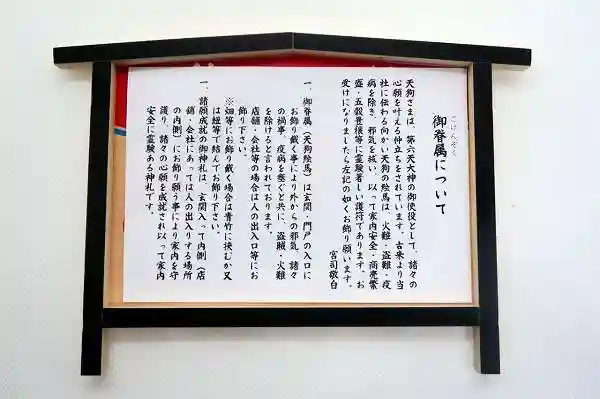 ごけんぞく
御眷属について
天狗さまは、第六天大神の御使役として、諸々の
心願を叶える仲立ちをされています。古来より当
社に伝わる向かい天狗の絵馬は、火難・盗難・疫
病を除き、邪気を祓い、以って家内安全・商売繁
盛・五穀豊穣等に霊験著しい護符であります。お
受けになりましたら左記の如くお飾り願います。
宮司敬白
一、御眷属(天狗絵馬)は玄関・門戸の入口に
お飾り戴く事により外からの邪気、諸々
の禍事、疫病を塞ぐと共に、盗賊・火難
を除けると言われております。
店舗・会社等の場合は人の出入口等にお
飾り下さい。
※畑等にお飾り戴く場合は青竹に挟むか又
は紐等で結んでお飾り下さい。
一、諸願成就の御神札は、玄関入って内側(店
舗・会社にあっては人の出入りする場所
の内側)にお飾り願う事により家内を守
護り、諸々の心願を成就され以って家内
安全に霊験ある神札です。